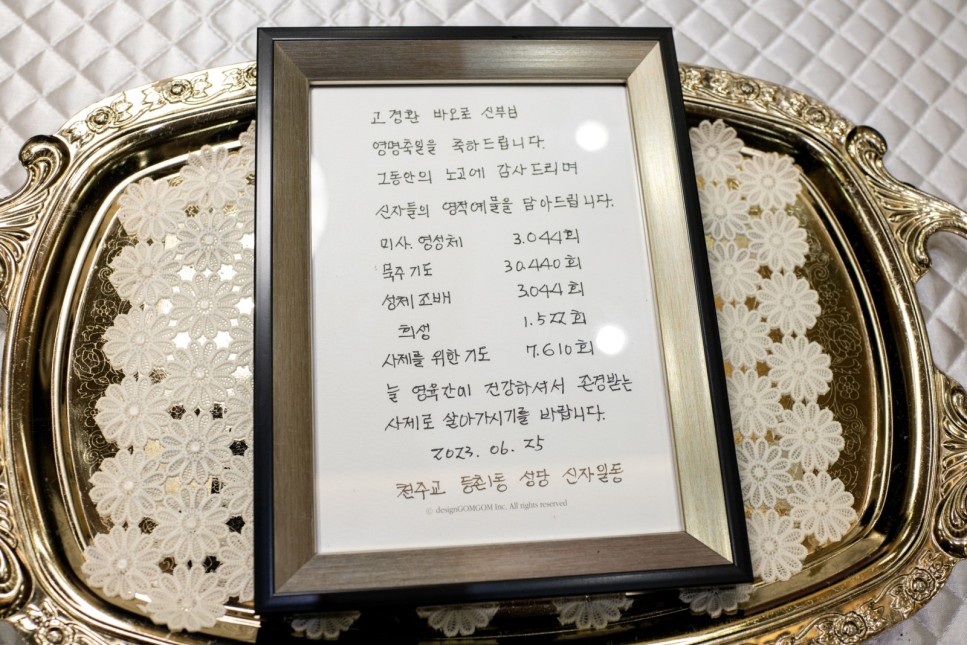 고경환 바오로 신부님
영명축일을 축하드립니다.
그동안의 노고에 감사드리며
신자들의 영적예물을 담아드립니다.
미사. 영성체 3.044회
묵주기도 30.440회
성체조배 3.044회
희생 1.522회
사제를 위한 기도 7.610회
늘 영육간에 건강하셔서 존경받는
사제로 살아가시기를 바랍니다.
2023. 06. 25
천주교 등촌1동 성당 신자일동
© designGOMGOM Inc. All rights reserved